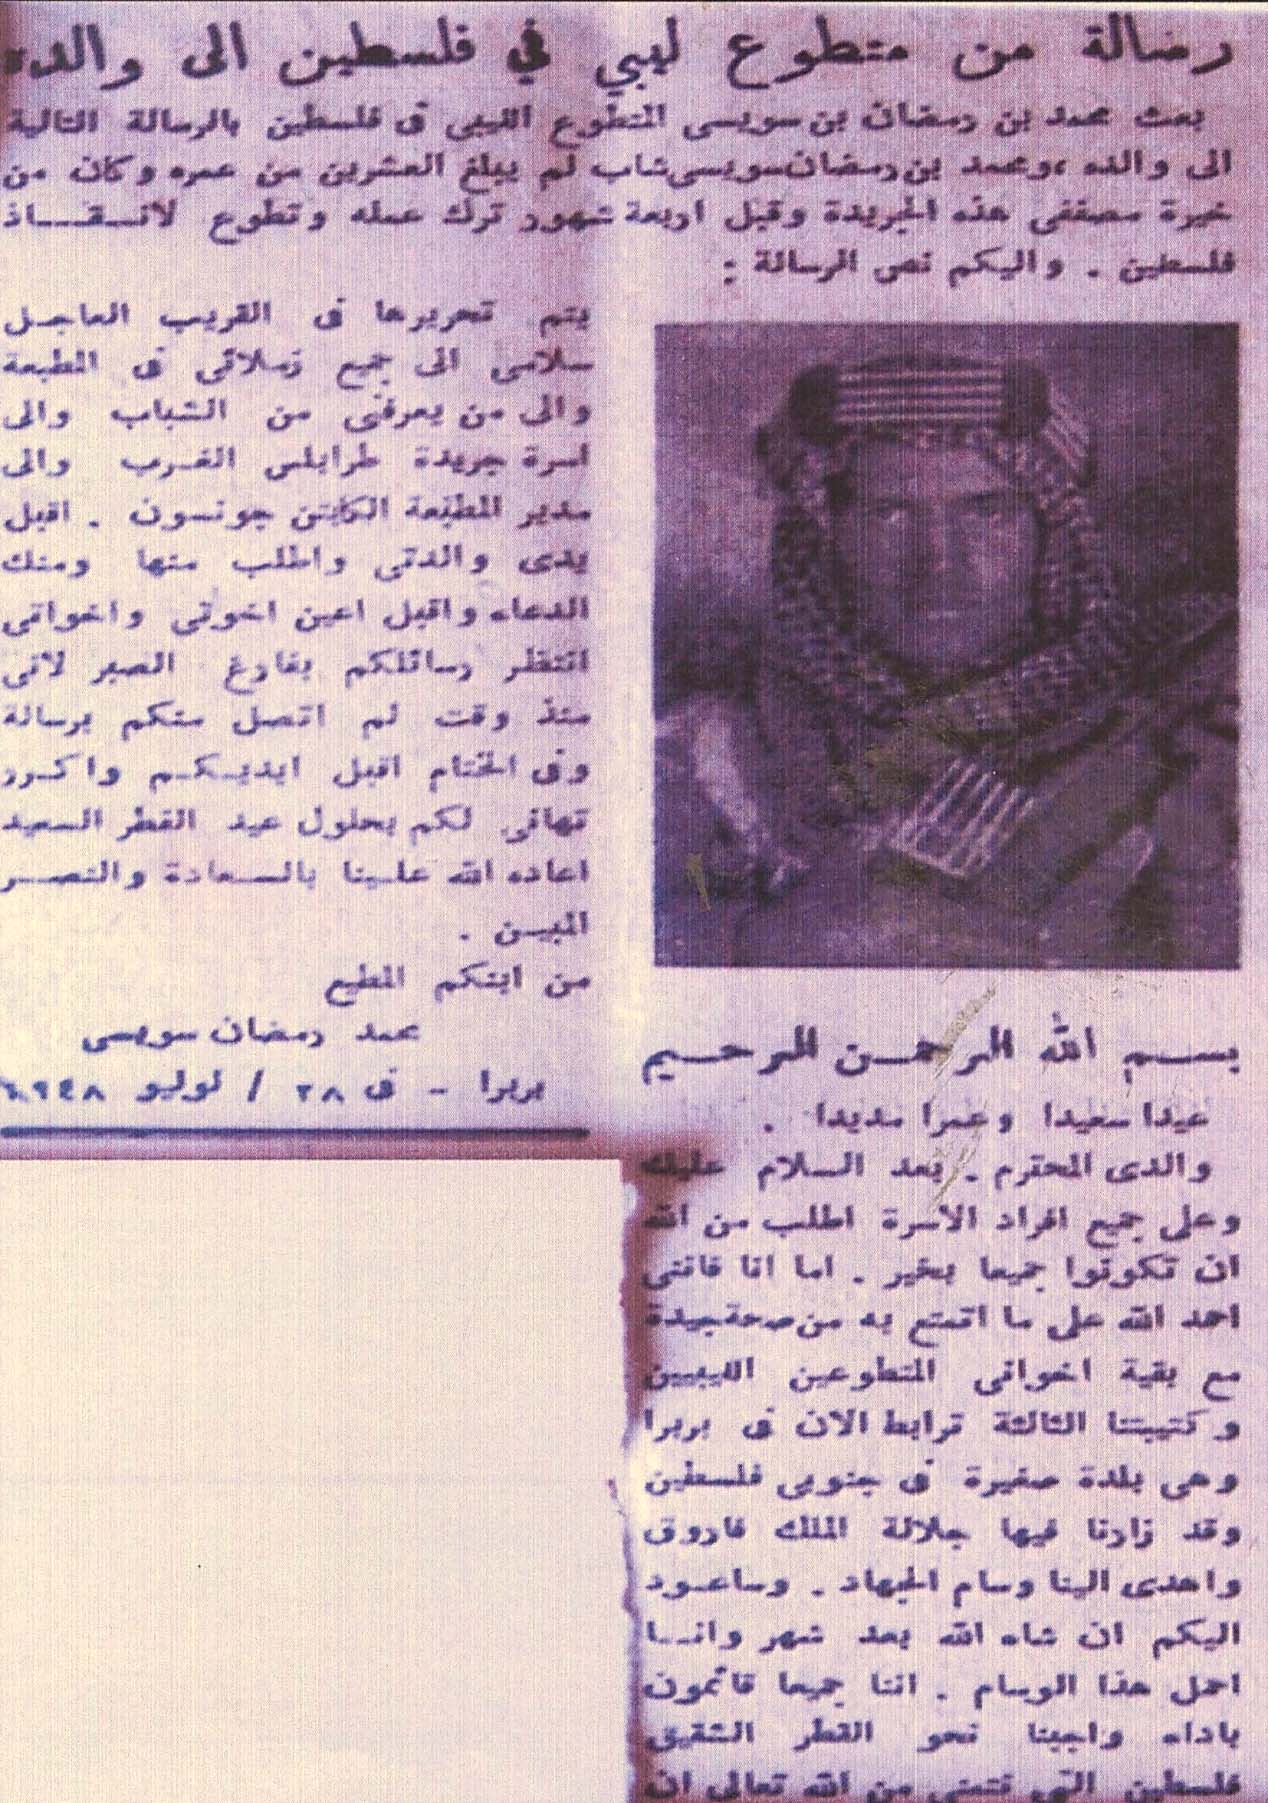 رسالة من متطوع ليبي في فلسطين الى والده
بعث محمد بن رمضان بن سويسى المتطوع الليبى فى فلسطين بالرسالة التالية
الى والده ، ومحمد بن رمضان سويسى شاب لم يبلغ العشرين من عمره وكان من
خيرة مصففى هذه الجريدة وقبل اربعة شهور ترك عمله وتطوع لانقاذ
فلسطين . واليكم نص الرسالة :
بسم الله الرحمن الرحيم
عيدا سعيدا وعمرا مديدا .
والدى المحترم . بعد السلام عليك
وعلى جميع افراد الاسرة اطلب من الله
ان تكونوا جميعا بخير . اما انا فاننى
احمد الله على ما اتمتع به من صحة جيدة
مع بقية اخوانى المتطوعين الليبيين
وكتيبتنا الثالثة ترابط الان فى بربرا
وهى بلدة صغيرة فى جنوبى فلسطين
وقد زارنا فيها جلالة الملك فاروق
واهدى الينا وسام الجهاد . وساعود
اليكم ان شاء الله بعد شهر وانا
احمل هذا الوسام . اننا جميعا قائمون
باداء واجبنا نحو القطر الشقيق
فلسطين التى نتمنى من الله تعالى ان
يتم تحريرها فى القريب العاجل
سلامى الى جميع زملائى فى المطبعة
والى من يعرفنى من الشباب والى
اسرة جريدة طرابلس الغرب والى
مدير المطبعة الكابتن جونسون . اقبل
يدى والدتى واطلب منها ومنك
الدعاء واقبل اعين اخوتى واخواتى
انتظر رسائلكم بفارغ الصبر لانى
منذ وقت لم اتصل منكم برسالة
وفى الختام اقبل ايديكم واكرر
تهانى لكم بحلول عيد الفطر السعيد
اعاده الله علينا بالسعادة والنصر
المبين .
من ابنكم المطيع
محمد رمضان سويسى
بربرا - فى ٢٨ / لوليو